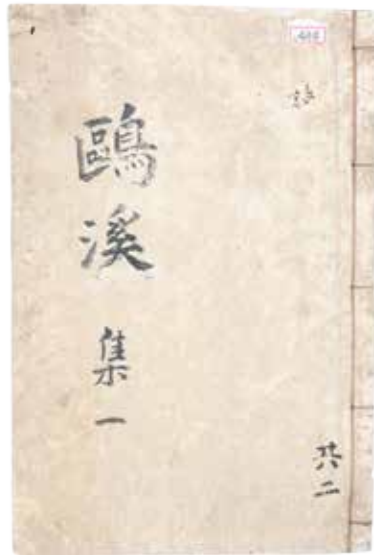 鷗溪 集一
共二